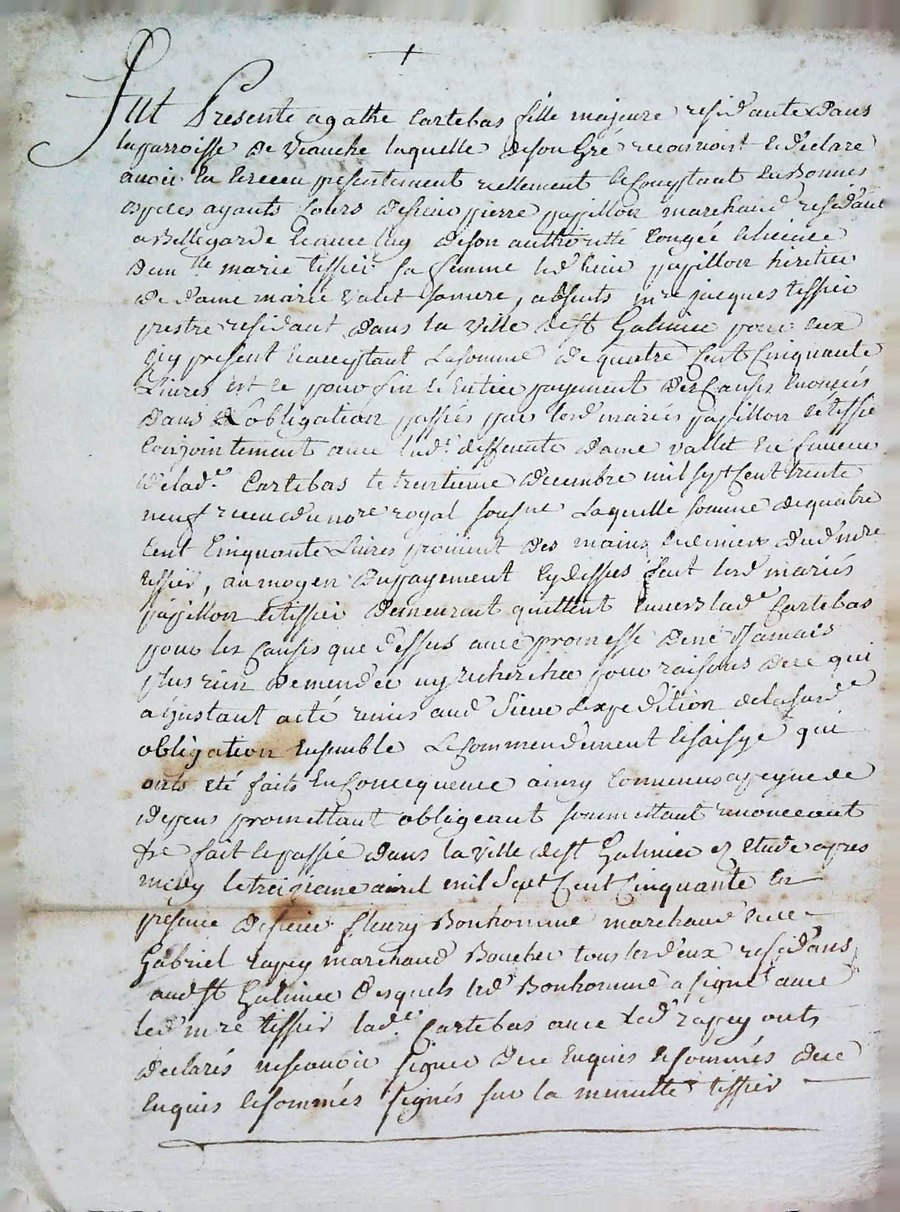 Fut Presente agathe Cartebas fille majeure residante Dans
la parroisse De Veauche laquelle Deson Gré reconnoist & Declare
avoir Eu & receu presentement reellement & Comptant En Bonnes
especes ayants Cours De sieur pierre papillon marchand residant
a Bellegarde Comme De son authorité Congée & licence
Dam.lle marie tissier sa femme led sieur papillon heritier
de Dame marie Valet samere, absents mre jacques tissier
prestre residant Dans la Ville de st Galmier pour Eux
icy present & acceptant La somme De quatre Cent Cinquante
Livres est ce pour fin & Entier payement Des Causes Enoncées
Dans L'obligation passée par lesd mariés papillon & tissier
Conjointement avec lad.e deffunte Dame vallet En faveur
de lad.e Cartebas le trentieme Decembre mil sept Cent trente
neuf receu Du no.re royal sousné Laquelle somme De quatre
Cent Cinquante Livres provient Des mains & deniers Dud mre
tissier, au moyen Du payement Cy Dessus fait lesd mariés
papillon & tissier Demeurent quittent Envers lad.e Cartebas
pour les Causes que Dessus avec promesse De ne Jamais
plus rien Demender ny rechercher pour raisons De ce qui
a instant acté remis aud Sieur L'expedition de la susd.e
obligation Ensemble Le Commendement & saisye qui
onts été faits En Concequence ainsy Convenus a peyne de
Depens promettant obligeant soummettant renonceant
&c fait & passé Dans la ville de st Galmier Etude apres
midy le treizieme avril mil Sept Cent Cinquante En
presence De sieur fleury Bonhomme marchand & de
Gabriel rapey marchand Boucher tous les Deux residans
aud st Galmier Desquels led Bonhomme a signé avec
led mre tissier lad.e Cartebas avec led rapey onts
declarés ne sçavoir signer De ce Enquis & sommés De ce
Enquis & sommés signés sur la minutte tissier